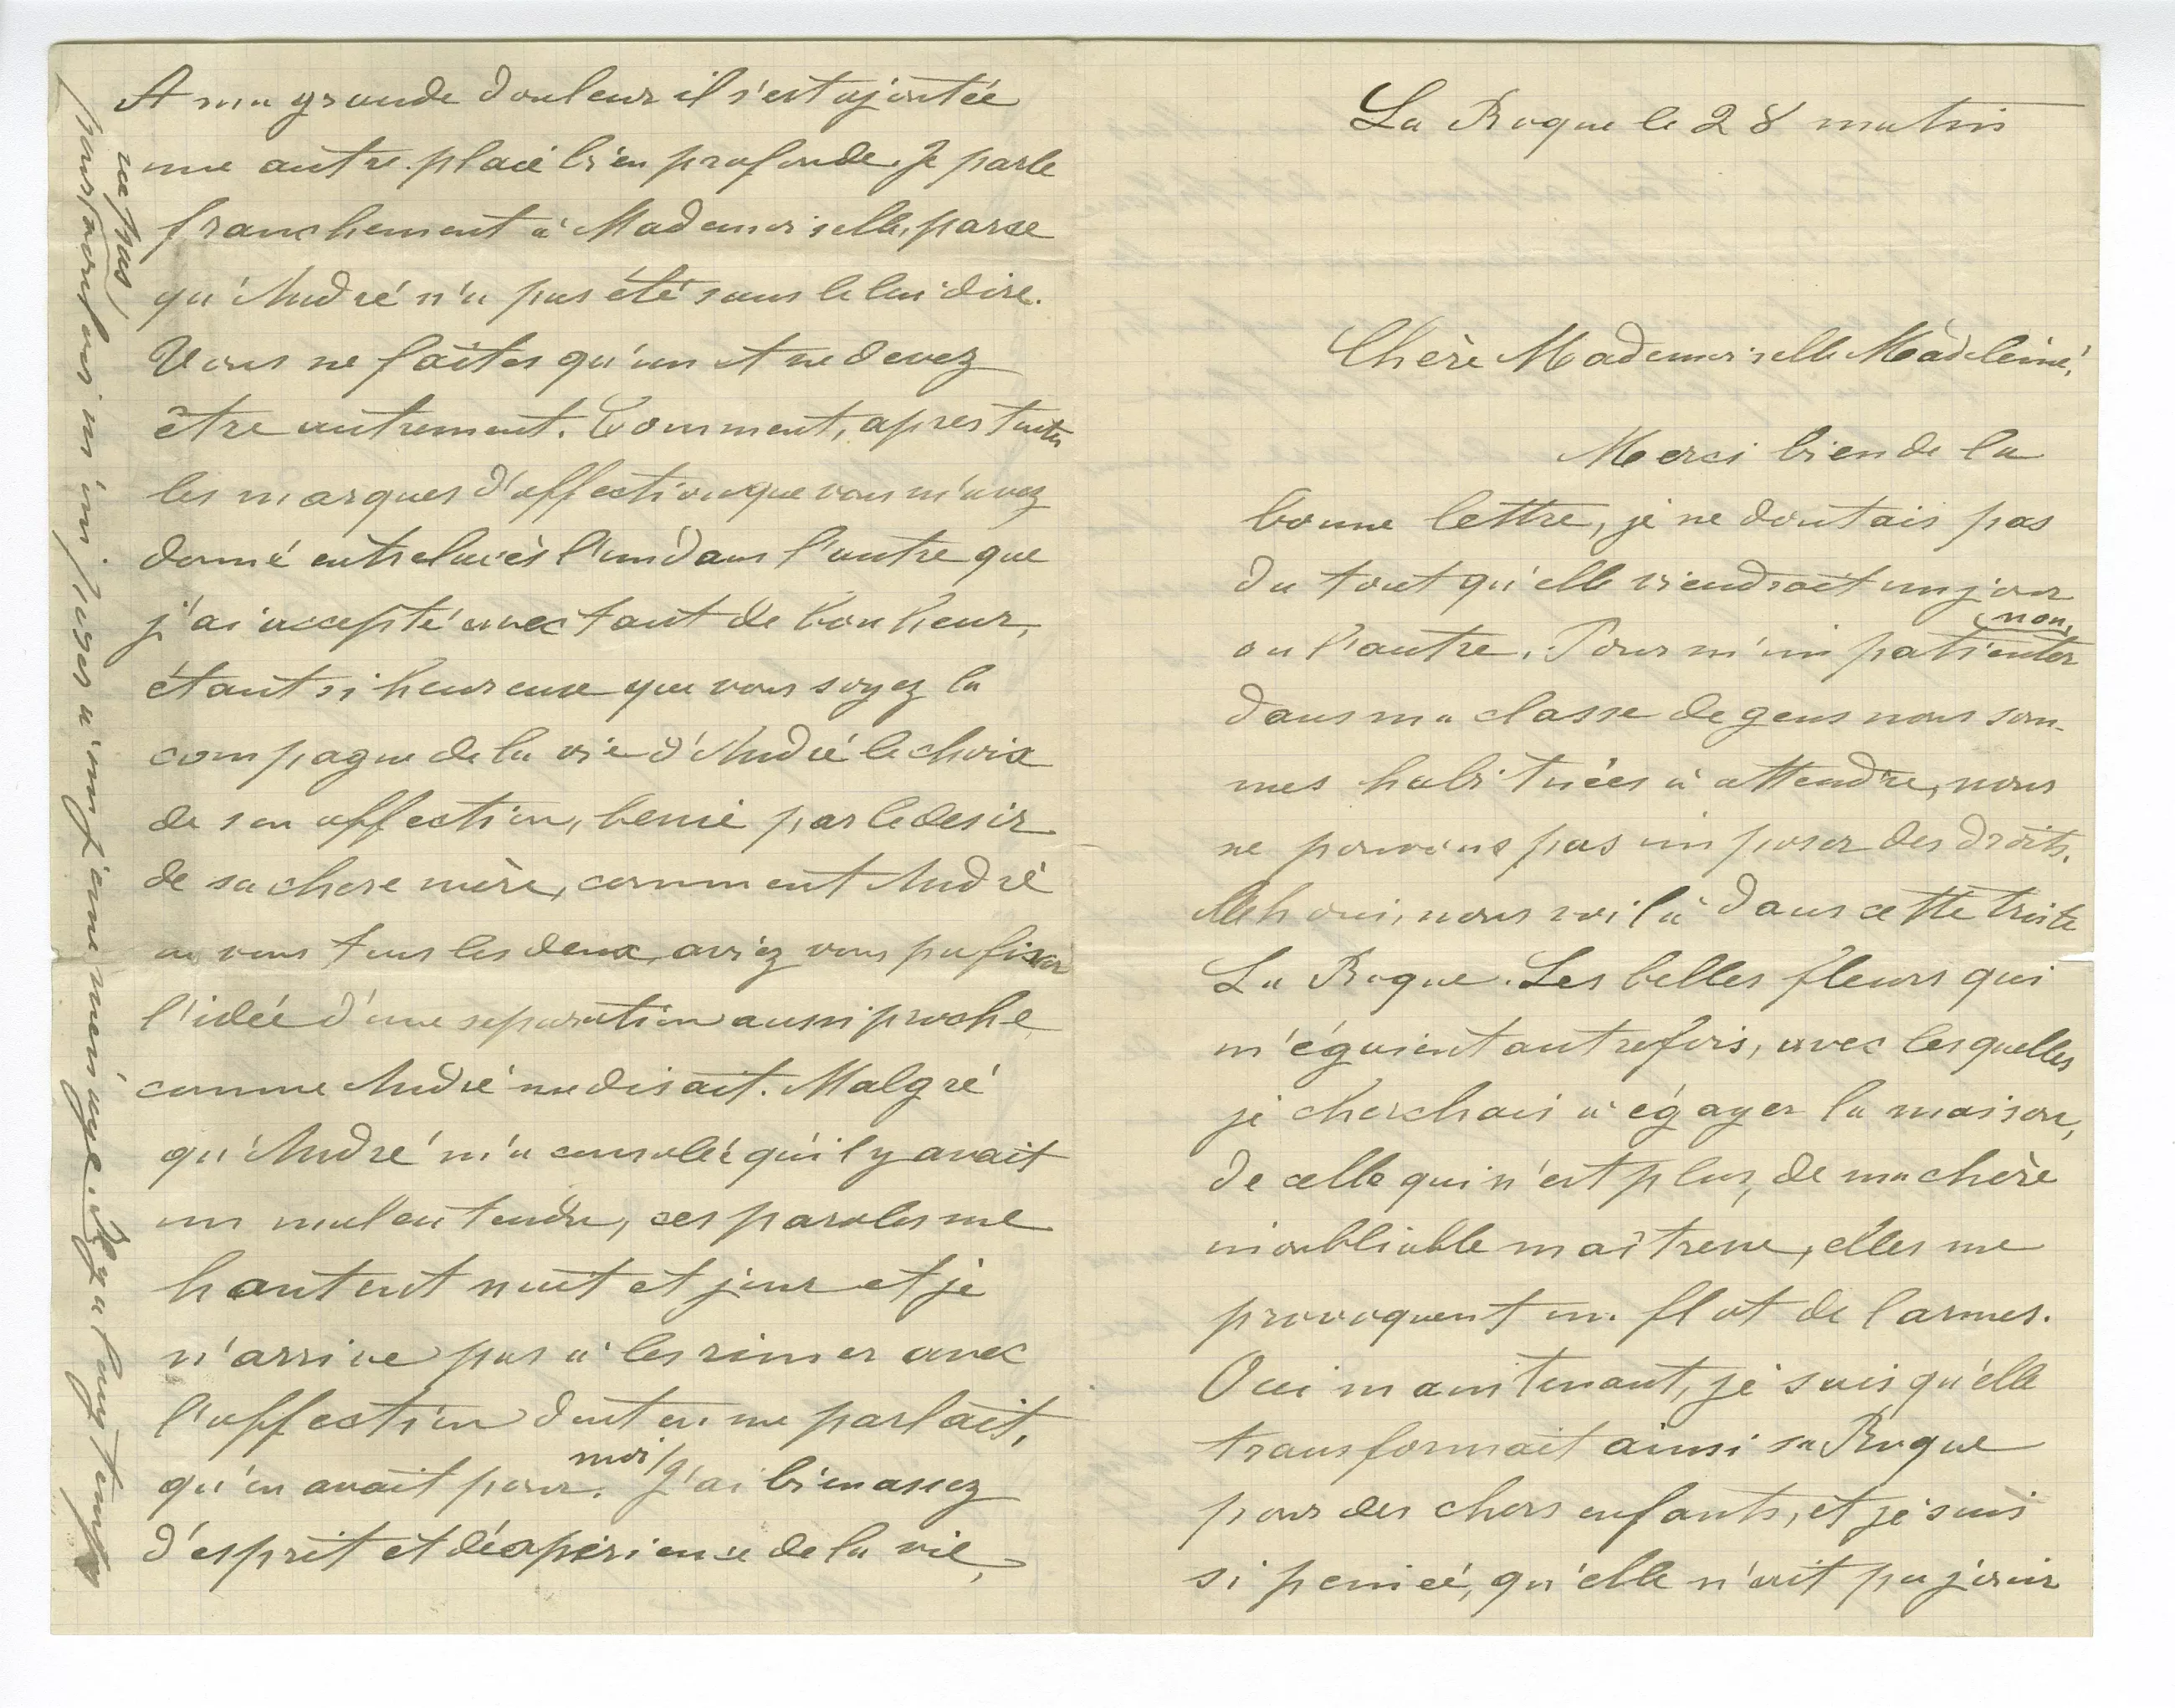 La Roque le 28 matin
Chère Mademoiselle Madeleine,
Merci bien de la
bonne lettre, je ne doutais pas
du tout qu'elle viendrait un jour
ou l'autre. Pour m'impatienter
non,
dans ma classe de gens nous som-
mes habituées à attendre, nous
ne pouvons pas imposer des droits.
oui, nous voilà dans cette triste
La Roque. Les belles fleurs qui
m'égaient autrefois, avec lesquelles
je cherchais à égayer la maison,
de celle qui n'est plus, de ma chère
inoubliable maîtresse, elles me
provoquent un flot de larmes.
Oui maintenant, je sais qu'elle
transformait ainsi sa Roque
pour des chers enfants, et je suis
si peinée, qu'elle n'ait pu jouir
A ma grande douleur il s'est ajoutée
une autre plaie bien profonde. Je parle
franchement à Mademoiselle, parse
qu'André n'a pas été sans le lui dire.
Vous ne faites qu'un et ne devez
être autrement. Comment, apres toutes
les marques d'affection que vous m'avez
donné entrelacés l'un dans l'autre que
j'ai accepté avec tant de bonheur,
étant si heureuse que vous soyez la
compagne de la vie d'André le choix
de son affection, benie par le desir
de sa chere mère, comment André
ou vous tous les deux, aviez vous pu fixer
l'idée d'une separation aussi proche
comme André me disait. Malgré
qu'André m'a consolée qu'il y avait
un malentendu, ces paroles me
hantent nuit et jour et je
n'arrive pas à les rimer avec
l'affection dont on me parlait,
qu'on avait pour. J'ai bien assez
moi/
d'esprit et d'éxperience de la vie,
pour vouloir m'imposer à un jeune menage. Il y a longtemps
ne pas/